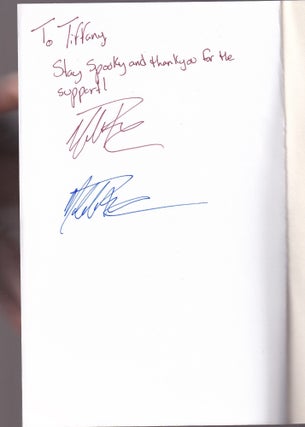 To Tiffany,
Stay Spooky and thankyou for the
support!